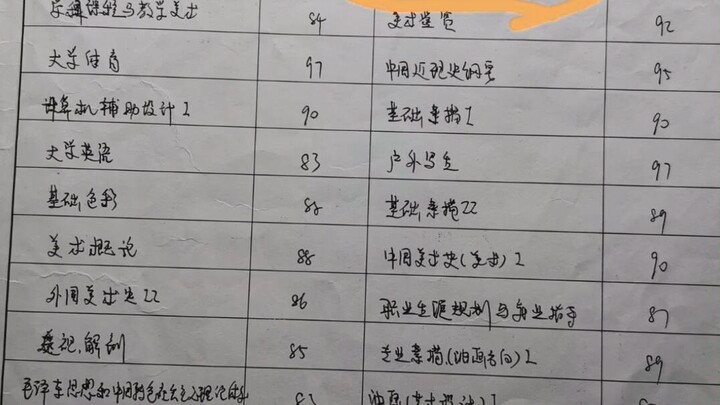 学科课程与教学美术 84 美术鉴赏 92
大学体育 97 中国近现史纲要 95
计算机辅助设计I 90 基础素描I 90
大学英语 83 户外写生 97
基础色彩 88 基础素描22 89
美术概论 88 中国美术史(美术)I 90
外国美术史22 86 职业生涯规划与就业指导 87
透视.解剖 85 专业素描.(油画方向)I 89
毛泽东思想和中国特色社会主义理论体系 83